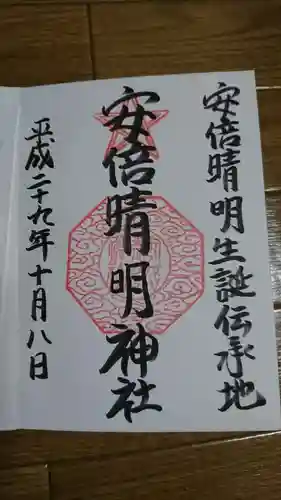 安倍晴明生誕伝承地
安倍晴明神社
平成二十九年十月八日